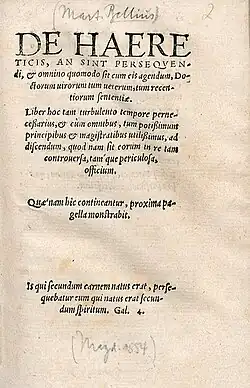 (Mart. Bellius)
2
DE HAERE
TICIS, AN SINT PERSEQUEN-
di, & omnino quomodo sit cum eis agendum, Do-
ctorum uirorum tum ueterum, tum recen-
tiorum sententiæ.
Liber hoc tam turbulento tempore perne-
cessarius, & cùm omnibus, tum potissimum
principibus & magistratibus utilissimus, ad
discendum, quod nam sit eorum in re tam
controuersa, tam'que periculosa,
officium.
Quæ nam hic contineantur, proxima pa-
gella monstrabit.
Is qui secundum carnem natus erat, perse-
quebatur eum qui natus erat secun-
dum spiritum. Gal. 4.
1554)